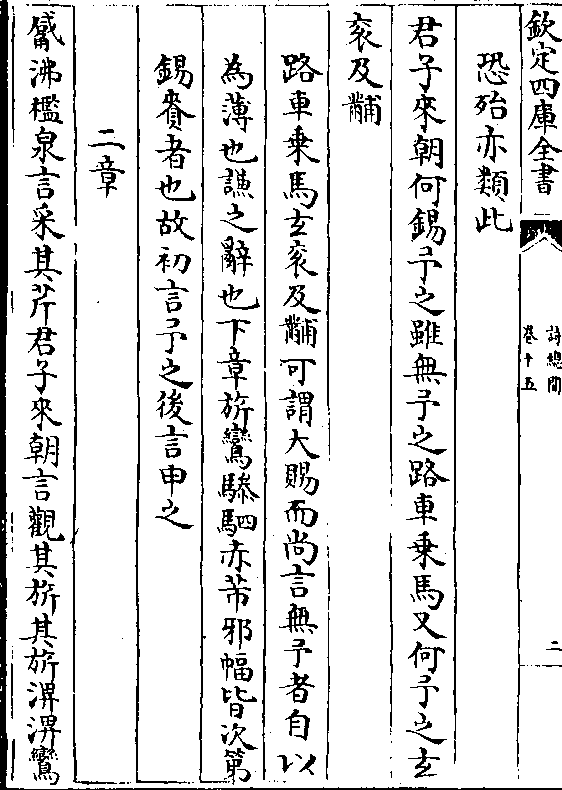 欽定四庫全書
詩總聞
卷十五
二
恐殆亦類此
君子來朝何錫予之雖無予之路車乘馬又何予之玄
衮及黼
路車乘馬玄衮及黼可謂大賜而尚言無予者自以
為薄也謙之辭也下章旂鸞驂駟赤芾邪幅皆次第
錫賚者也故初言予之後言申之
二章
觱沸檻泉言采其芹君子來朝言觀其旂其旂淠淠鸞